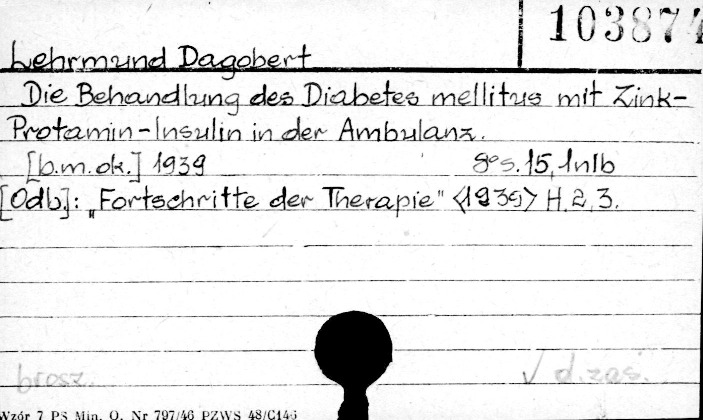 103874
Lehrmund Dagobert
Die Behandlung des Diabetes mellitus mit Zink-
Protamin-Insulin in der Ambulanz.
[b.m.ok.] 1939 8° s. 15, 1nlb
[Odb]: „Fortschritte der Therapie" <1939> H. 2, 3.
brosz. √ d. zas.
Wzór 7 PS Min. O. Nr 797/46 PZWS 48/C146